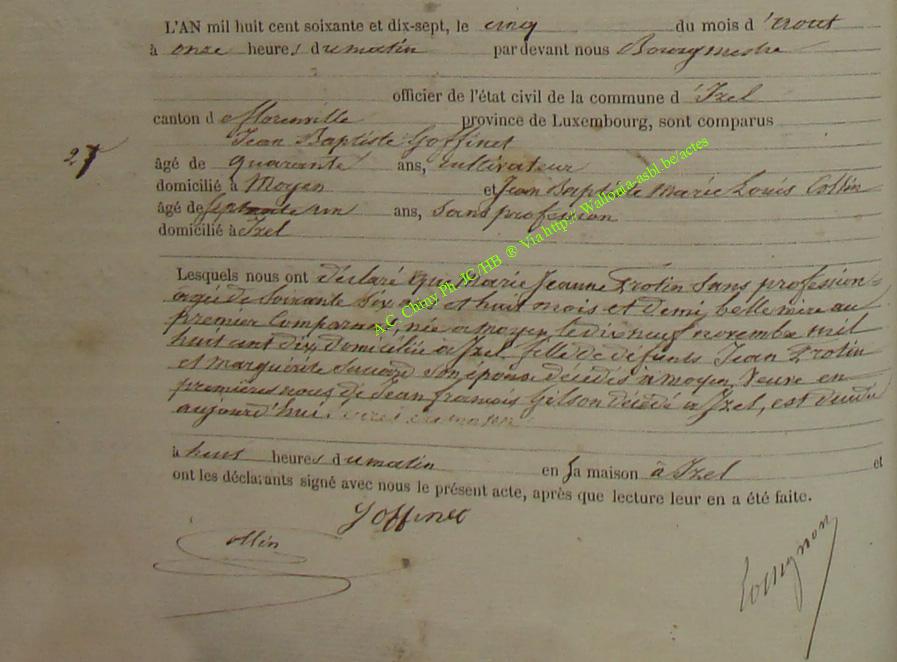 L'AN mil huit cent soixante et dix-sept, le cinq du mois d'Aout
à onze heures du matin par devant nous Bourgmestre
officier de l'état civil de la commune d'Izel
canton d Florenville province de Luxembourg, sont comparus
Jean Baptiste Goffinet
27
âgé de quarante ans, cultivateur
domicilié à Moyen et Jean Baptiste Marie Louis Collin
âgé de septante un ans, sans profession
domicilié à Izel
Lesquels nous ont déclaré que Marie Jeanne Frotin sans profession
agée de soixante six ans et huit mois et demi, belle mère au
premier Comparant, née à moyen, le dix neuf novembre mil
huit cent dix, domiciliée à Izel, fille de défunts Jean Frotin
et Marguérite son épouse décédés à moyen, Veuve en
premières noces de Jean françois Gilson décédé à Izel, est décédée
aujourd'hui
à huit heures du matin en sa maison à Izel et
ont les déclarants signé avec nous le présent acte, après que lecture leur en a été faite.
Goffinet
Collin
A.C. Chiny Ph. JC/HB ® Via http:\\Wallonia-asbl.be/actes